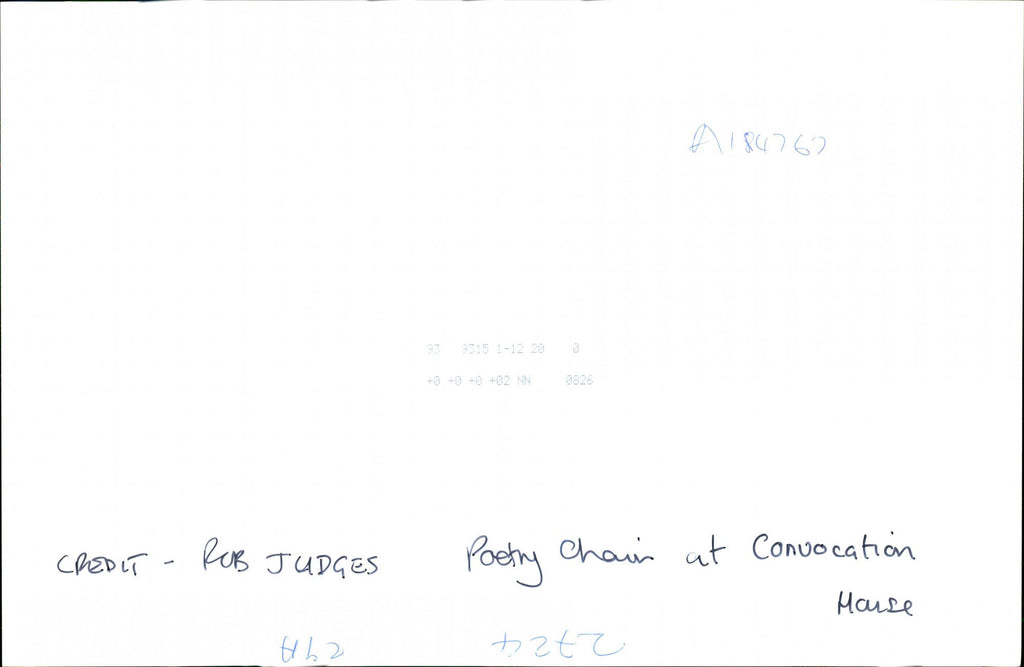 A184767
93 9315 1-12 20 0
+0 +0 +0 +02 NN 0826
CREDIT - ROB JUDGES
Poetry Chair at Convocation
House